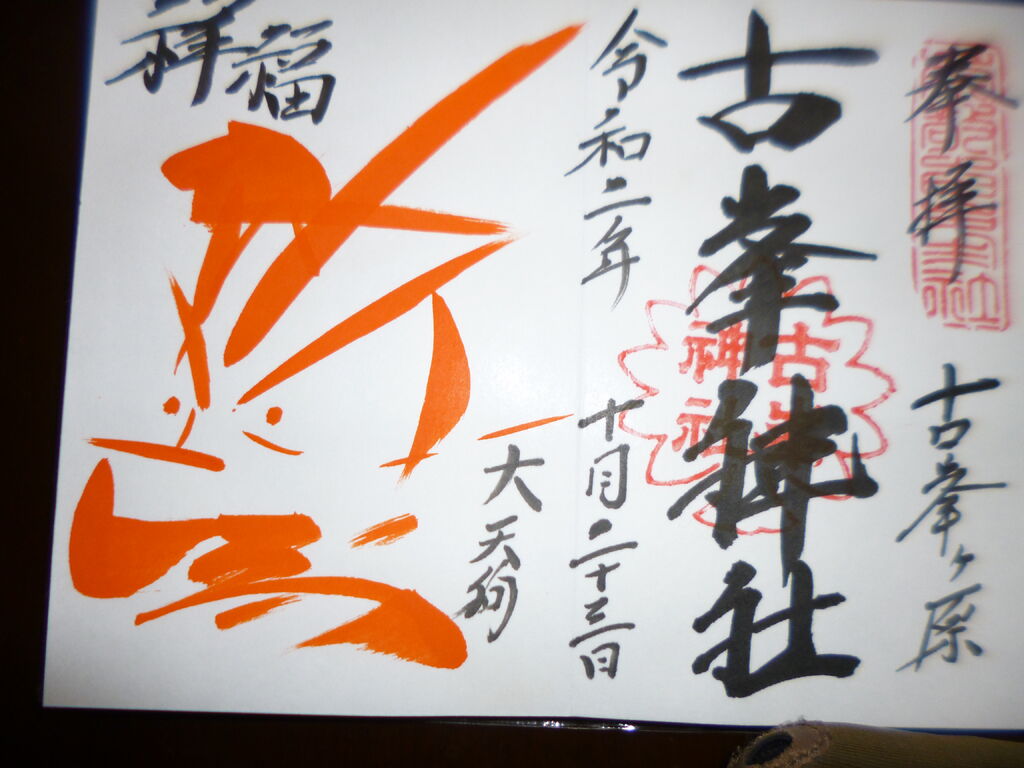 奉拝
古峯ヶ原
古峯神社
古峯神社
令和二年
十月二十三日
大天狗
福
祥